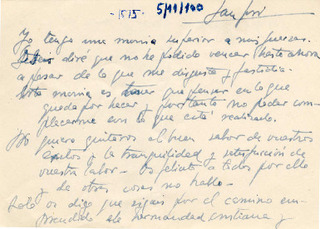 -1575- 5/11/100 San José
Yo tengo una manía superior a mis fuerzas.
diré que no he podido vencer hasta ahora
a pesar de lo que me disgusta y fastidia.
Esta manía es tener que pensar en lo que
queda por hacer y por tanto no poder com-
placerme con lo que está realizado.
No quiero quitaros el buen sabor de vuestros
éxitos y la tranquilidad y satisfacción de
vuestra labor. Os felicito a todos por ello
y de otras cosas no hablo.
Solo os digo que sigáis por el camino em-
prendido de hermandad cristiana y